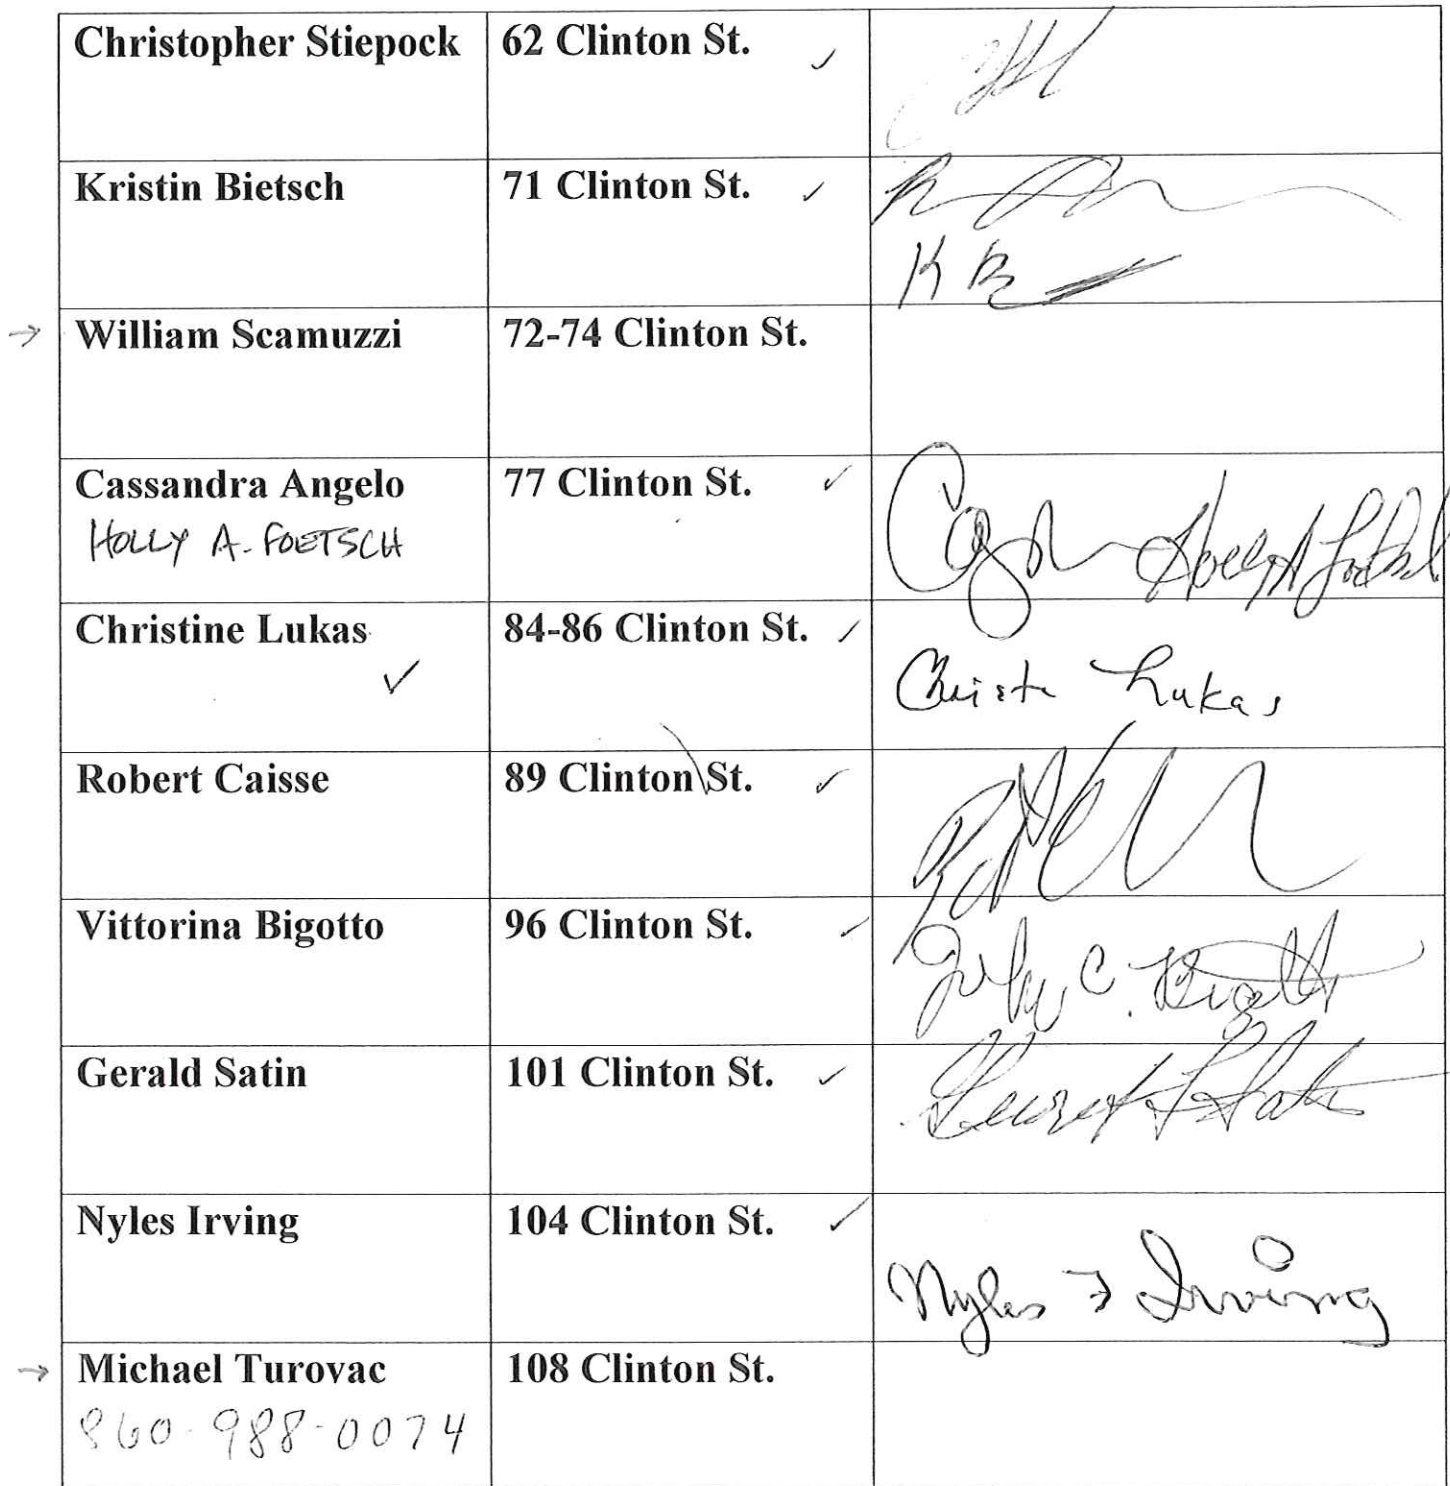 Christopher Stiepock 62 Clinton St. ✓
Kristin Bietsch 71 Clinton St. ✓
K B
→ William Scamuzzi 72-74 Clinton St.
Cassandra Angelo 77 Clinton St. ✓
HOLLY A. FOETSCH
Christine Lukas 84-86 Clinton St. ✓
✓ Christe Lukas
Robert Caisse 89 Clinton St. ✓
Vittorina Bigotto 96 Clinton St. ✓
Gerald Satin 101 Clinton St. ✓
Nyles Irving 104 Clinton St. ✓
Nyles F Irving
→ Michael Turovac 108 Clinton St.
860-988-0074